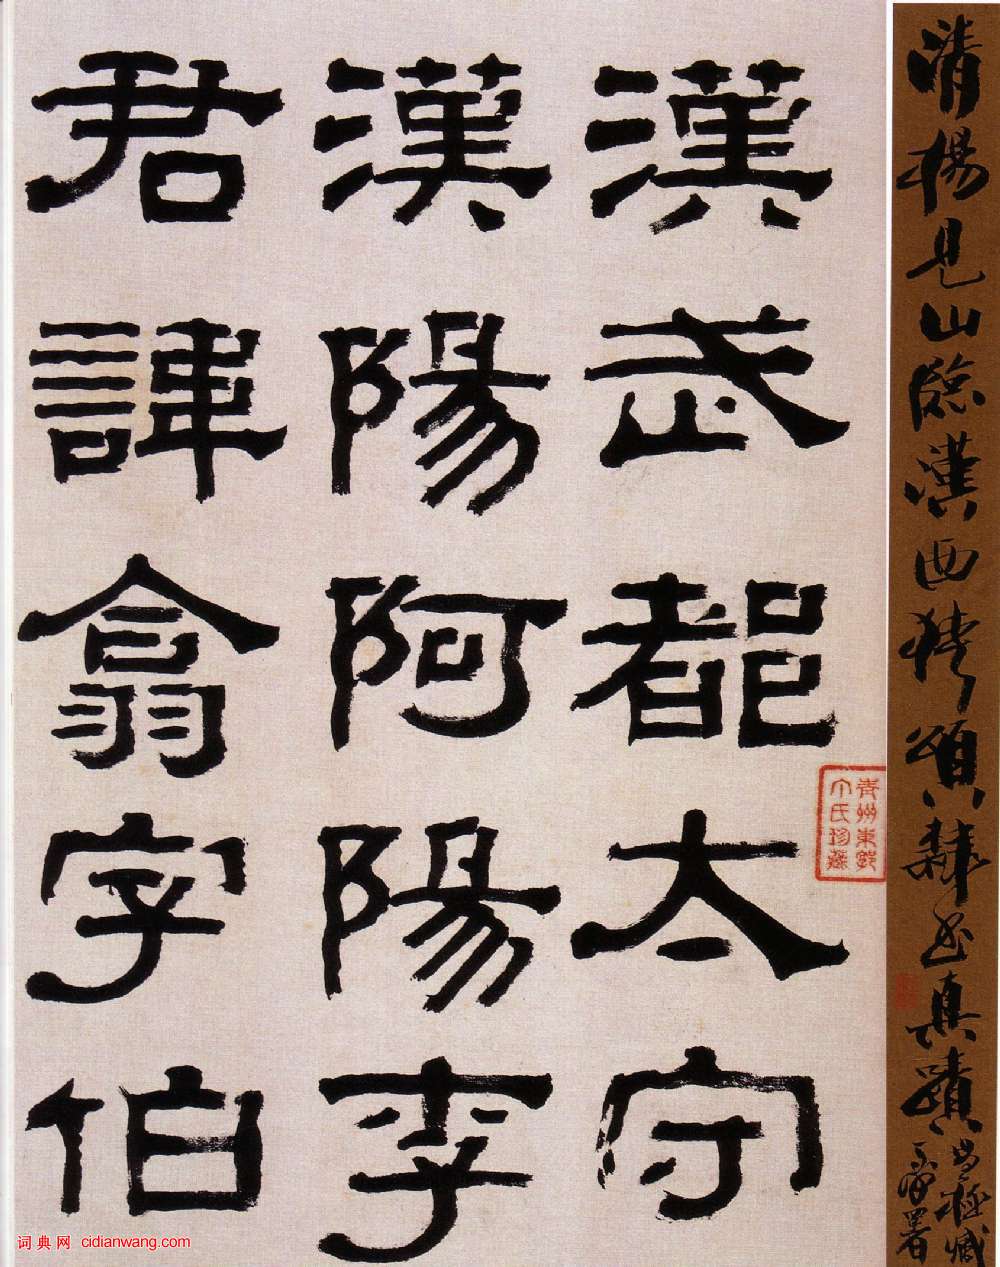 清楊見山臨漢西狹頌隸書真蹟
漢武都太守
漢陽阿陽李
君諱翕字伯
青州東郭
氏珍藏
词典网 cidianwang.com